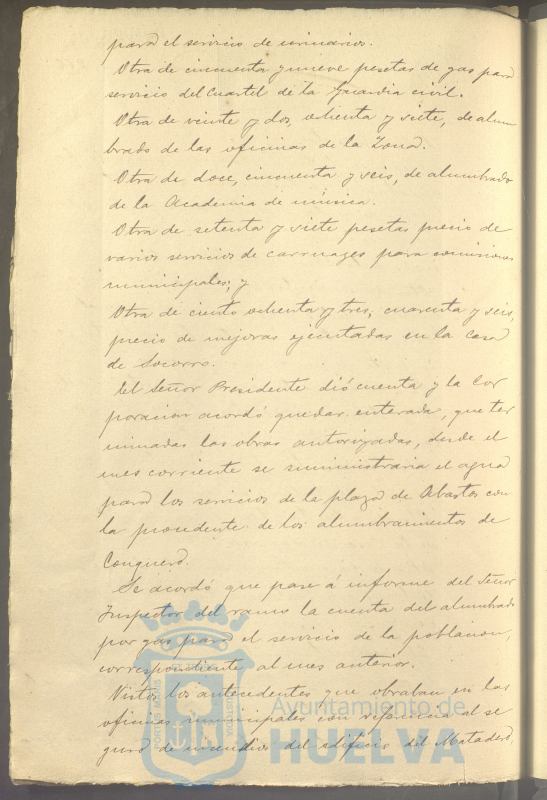 para el servicio de urinarios.
Otra de cincuenta y nueve pesetas de gas para
servicio del Cuartel de la Guardia civil.
Otra de veinte y dos, ochenta y siete, de alum
brado de las oficinas de la Zona.
Otra de doce, cincuenta y seis, de alumbrado
de la Academia de música.
Otra de setenta y siete pesetas precio de
varios servicios de carruages para comisiones
municipales; y
Otra de ciento ochenta y tres, cuarenta y seis,
precio de mejoras ejecutadas en la Casa
de Socorro.
El Señor Presidente dió cuenta y la Cor
poracion acordó quedar enterada, que ter
minadas las obras autorizadas, desde el
mes corriente se suministraria el agua
para los servicios de la plaza de Abastos con
la procedente de los alumbramientos de
Conquero.
Se acordó que pase á informe del Señor
Inspector del ramo la cuenta del alumbrado
por gas para el servicio de la poblacion,
correspondiente al mes anterior.
Vistos los antecedentes que obraban en las
oficinas municipales con referencia al se
guro de incendios del edificio del Matadero,
PORTUS MARIS
CUSTODIA
Ayuntamiento de
HUELVA